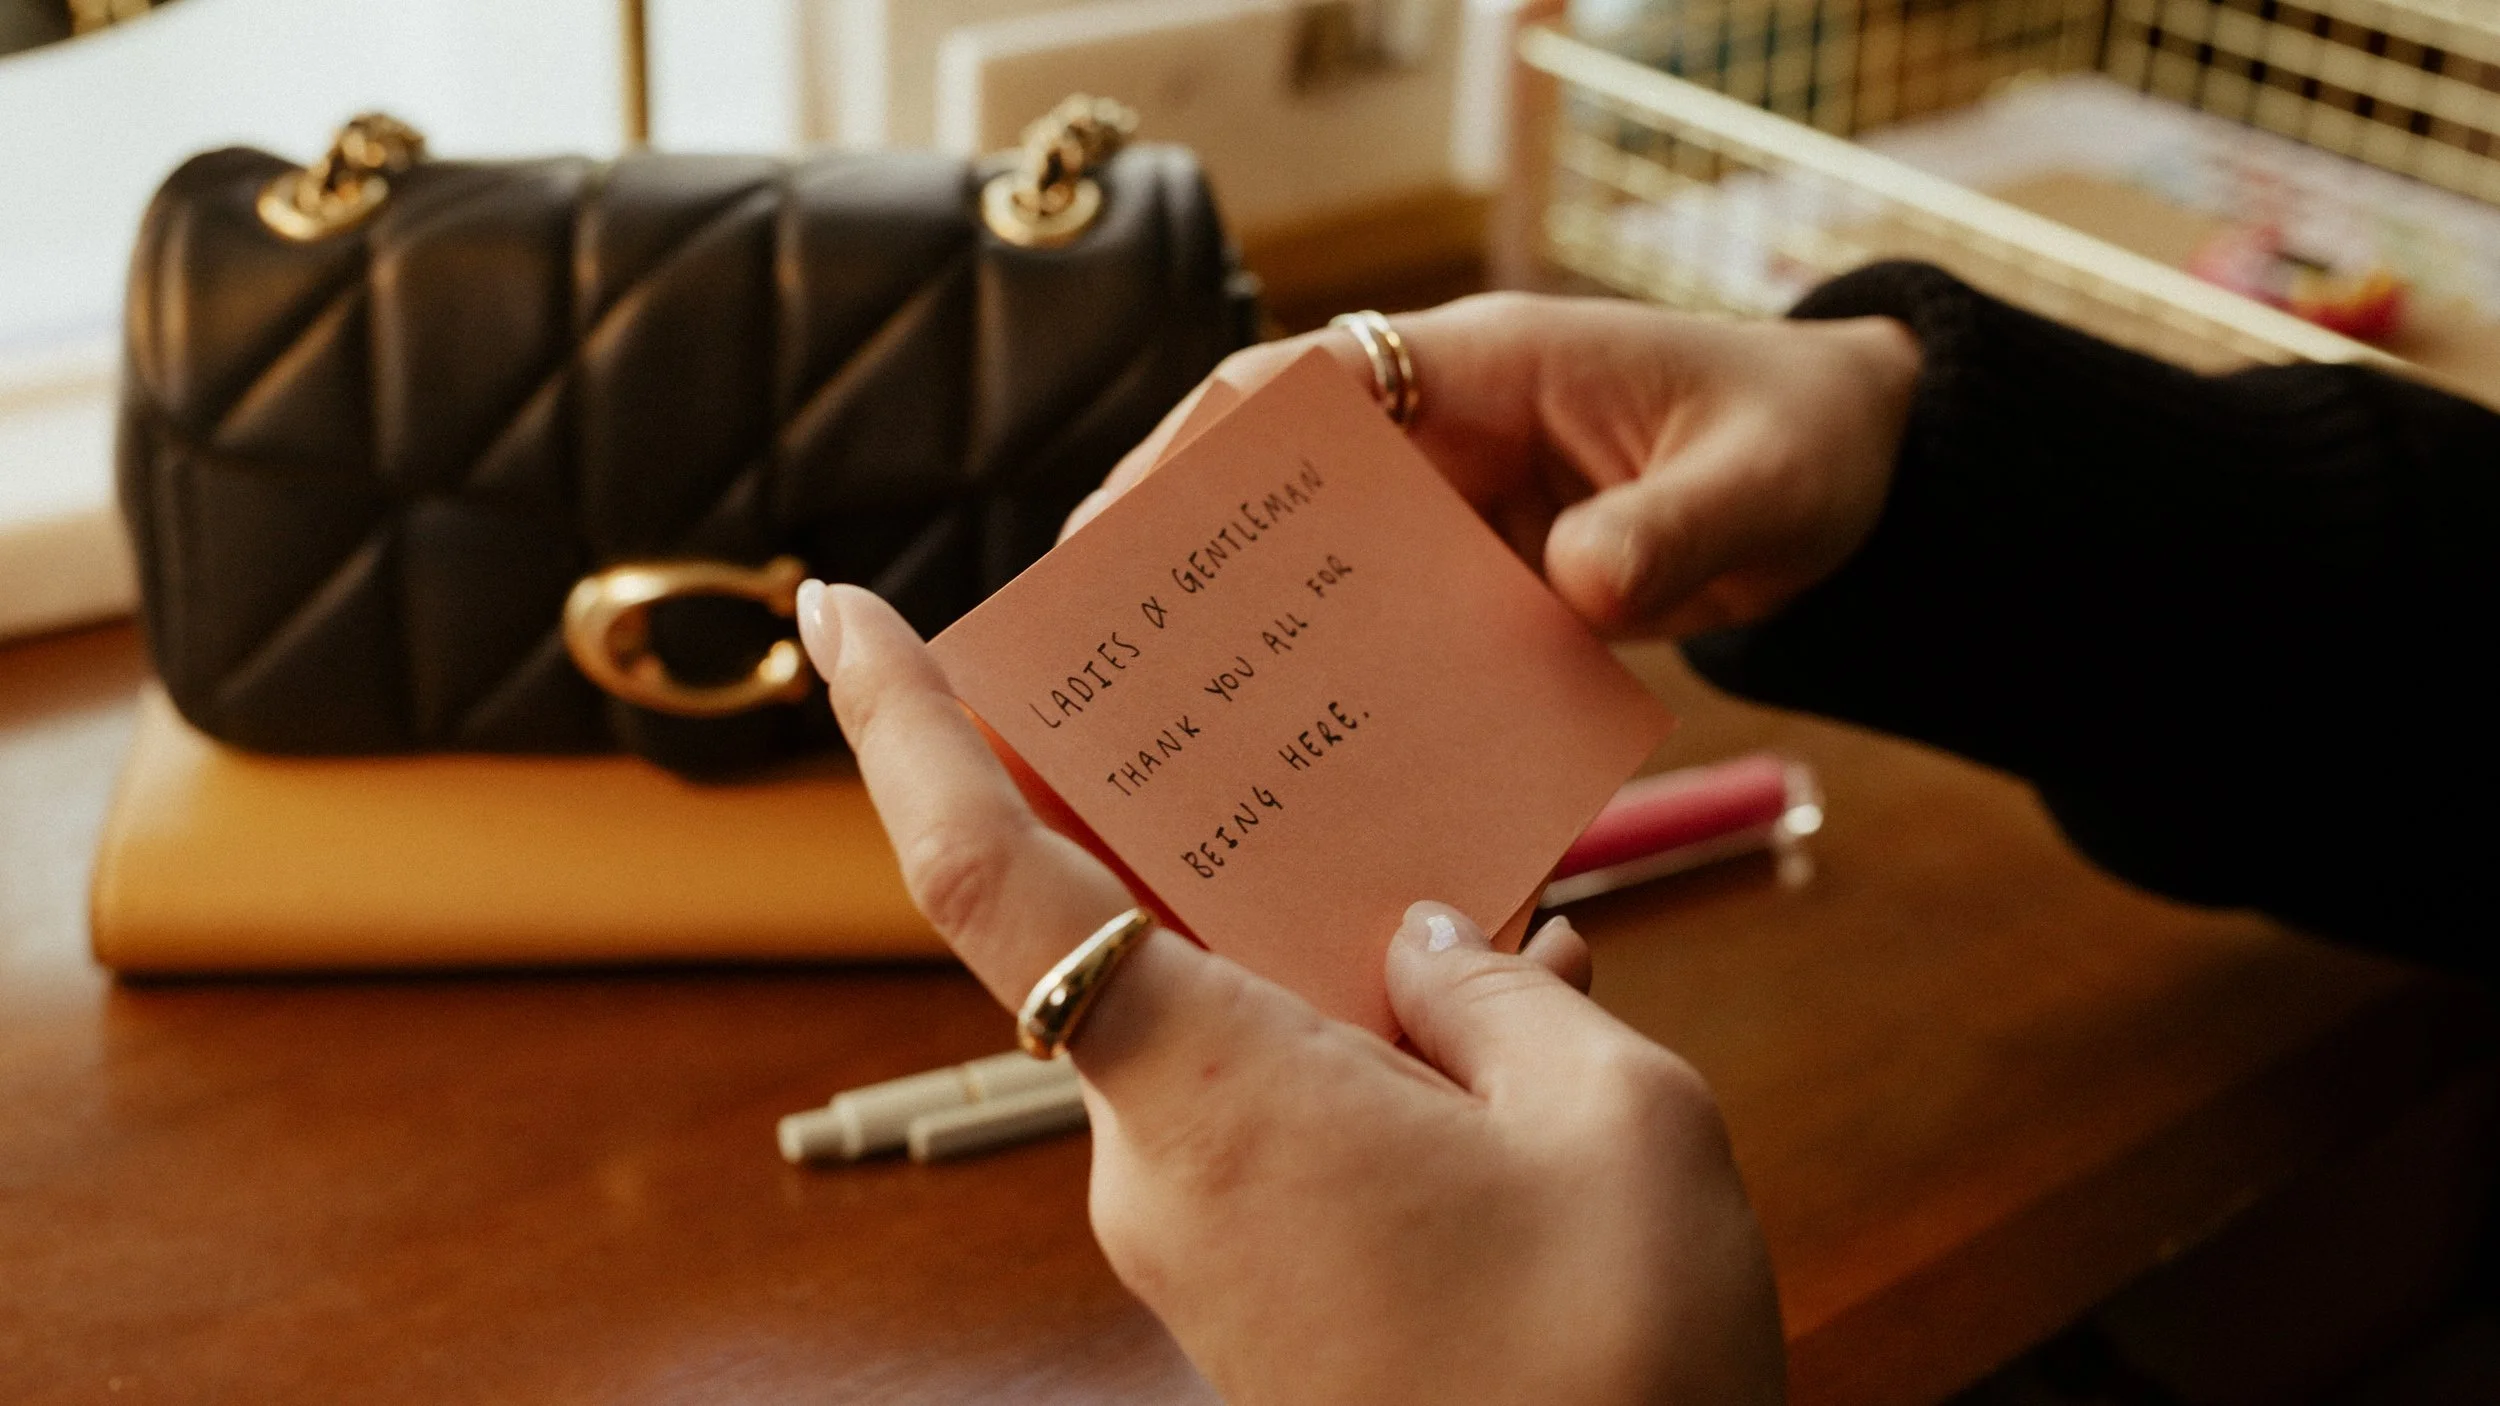 LADIES & GENTLEMAN
THANK YOU ALL FOR
BEING HERE.